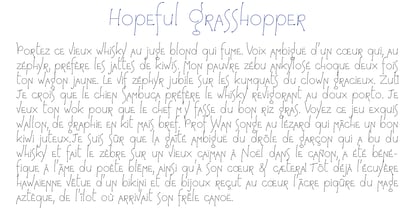 Hopeful Grasshopper
Portez ce vieux whisky au juge blond qui fume. Voix ambiguë d'un cœur qui, au
zéphyr, préfère les jattes de kiwis. Mon pauvre zébu ankylosé choque deux fois
ton wagon jaune. Le vif zéphyr jubile sur les kumquats du clown gracieux. Zut!
Je crois que le chien Sambuca préfère le whisky revigorant au doux porto. Je
veux ton wok pour que le chef m'y fasse du bon riz gras. Voyez ce jeu exquis
wallon, de graphie en kit mais bref. Prof Wan songe au lézard qui mâche un bon
kiwi juteux.Je suis sûr que la gaîté ambigüe du drôle de garçon qui a bu du
whisky et fait le zèbre sur un vieux caïman à Noël dans le cañon, a été béné-
fique à l'âme du poète blême, ainsi qu'à son cœur & cætera! Tôt déjà l'écuyère
hawaïenne vêtue d'un bikini et de bijoux reçut au cœur l'âcre piqûre du mage
aztèque, de l'îlot où arrivait son frêle canoë.